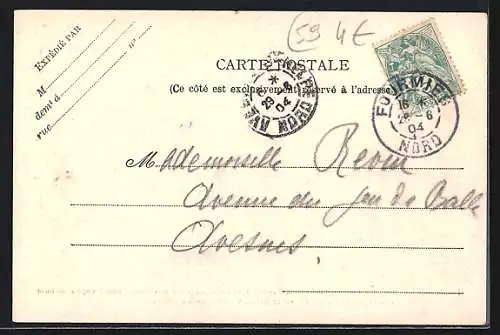 (59 4€
EXPÉDIÉ PAR
M
demt à
rue n°
CARTE POSTALE
(Ce côté est exclusivement réservé à l'adresse)
28 -6
04
FOURMIES
16
28 -6
04
NORD
Mademoiselle
Avenue du jeu de Balle
Avesnes